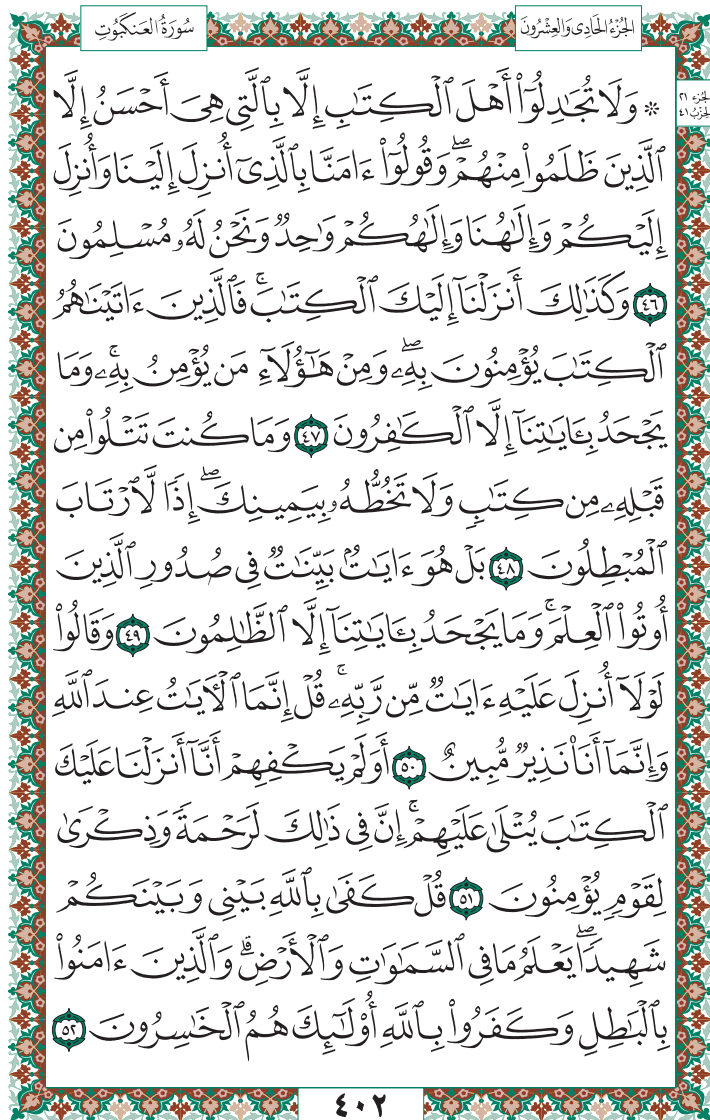 سُورَةُ العَنكَبُوتِ
الجُزْءُ الحَادِى وَالعِشْرُونَ
الجزء ٢١
الحزب ٤١
۞ وَلَا تُجَـٰدِلُوٓا۟ أَهْلَ ٱلْكِتَـٰبِ إِلَّا بِٱلَّتِى هِىَ أَحْسَنُ إِلَّا
ٱلَّذِينَ ظَلَمُوا۟ مِنْهُمْ ۖ وَقُولُوٓا۟ ءَامَنَّا بِٱلَّذِىٓ أُنزِلَ إِلَيْنَا وَأُنزِلَ
إِلَيْكُمْ وَإِلَـٰهُنَا وَإِلَـٰهُكُمْ وَٰحِدٌ وَنَحْنُ لَهُۥ مُسْلِمُونَ
٤٦ وَكَذَٰلِكَ أَنزَلْنَآ إِلَيْكَ ٱلْكِتَـٰبَ ۚ فَٱلَّذِينَ ءَاتَيْنَـٰهُمُ
ٱلْكِتَـٰبَ يُؤْمِنُونَ بِهِۦ ۖ وَمِنْ هَـٰٓؤُلَآءِ مَن يُؤْمِنُ بِهِۦ ۚ وَمَا
يَجْحَدُ بِـَٔايَـٰتِنَآ إِلَّا ٱلْكَـٰفِرُونَ ٤٧ وَمَا كُنتَ تَتْلُوا۟ مِن
قَبْلِهِۦ مِن كِتَـٰبٍ وَلَا تَخُطُّهُۥ بِيَمِينِكَ ۖ إِذًا لَّٱرْتَابَ
ٱلْمُبْطِلُونَ ٤٨ بَلْ هُوَ ءَايَـٰتٌۢ بَيِّنَـٰتٌ فِى صُدُورِ ٱلَّذِينَ
أُوتُوا۟ ٱلْعِلْمَ ۚ وَمَا يَجْحَدُ بِـَٔايَـٰتِنَآ إِلَّا ٱلظَّـٰلِمُونَ ٤٩ وَقَالُوا۟
لَوْلَآ أُنزِلَ عَلَيْهِ ءَايَـٰتٌ مِّن رَّبِّهِۦ ۚ قُلْ إِنَّمَا ٱلْـَٔايَـٰتُ عِندَ ٱللَّهِ
وَإِنَّمَآ أَنَا۠ نَذِيرٌ مُّبِينٌ ٥٠ أَوَلَمْ يَكْفِهِمْ أَنَّآ أَنزَلْنَا عَلَيْكَ
ٱلْكِتَـٰبَ يُتْلَىٰ عَلَيْهِمْ ۚ إِنَّ فِى ذَٰلِكَ لَرَحْمَةً وَذِكْرَىٰ
لِقَوْمٍ يُؤْمِنُونَ ٥١ قُلْ كَفَىٰ بِٱللَّهِ بَيْنِى وَبَيْنَكُمْ
شَهِيدًا ۖ يَعْلَمُ مَا فِى ٱلسَّمَـٰوَٰتِ وَٱلْأَرْضِ ۗ وَٱلَّذِينَ ءَامَنُوا۟
بِٱلْبَـٰطِلِ وَكَفَرُوا۟ بِٱللَّهِ أُو۟لَـٰٓئِكَ هُمُ ٱلْخَـٰسِرُونَ ٥٢
٤٠٢